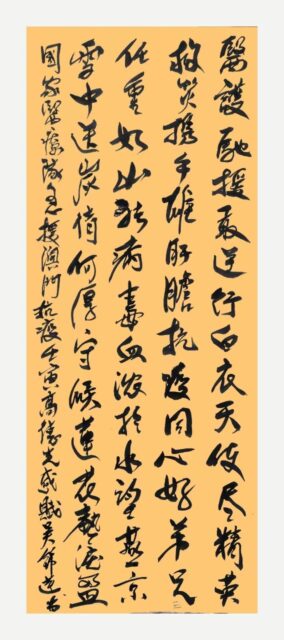 醫護馳援最逆行白衣天使尽精英
救災携手雄肝膽抗疫同心好弟兄
任重如山祛病毒血濃於水望燕京
雪中送炭情何厚守候蓮花熱淚盈
國家醫療隊急援澳門抗疫壬寅高偉光感賦吳錦书